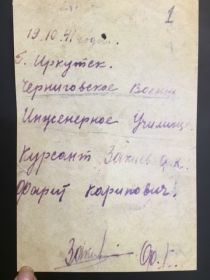 1
19.10.41 года.
г. Иркутск.
Черниговское Военно
Инженерное Училище
Курсант Закиев Ф.К.
Фарит Карипович.